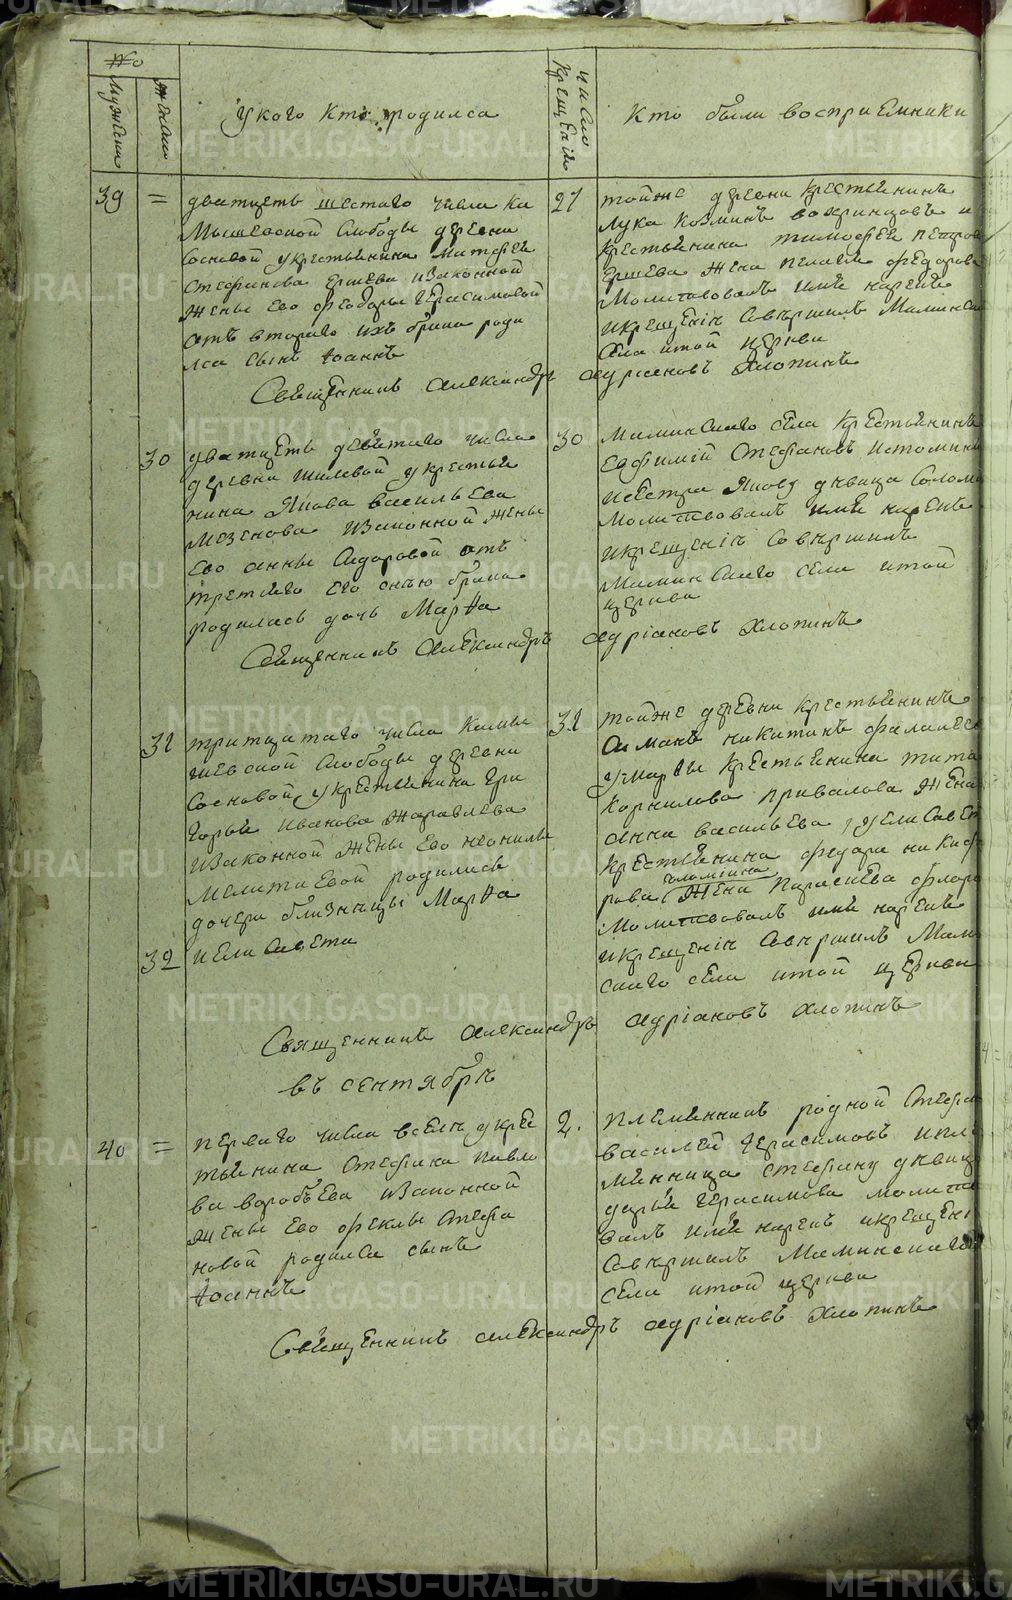 №
Мужеск
Женск
У кого кто родился
число крещенія
Кто были восприемники
39 =
дватцеть шестаго числа Ка
мышевской слободы деревни
сосновой укрестьянина Матфея
Стефанова Ершева изаконной
жены его феодоры Герасимовой
отъ втораго ихъ брака роди
лса сынъ Іоаннъ
27
тойже деревни крестьянинъ
Лука Козминъ и
крестьянина тимофея петрова
Ершева жена пелагея федорова
Молитвовалъ имя нарече
икрещеніе совершилъ Маминска
села итой церкви
Священникъ Александръ Адріановъ Хлопинъ
30
дватцеть девятаго числа
деревни шиловой укрестья
нина Якова васильева
Мезенова изаконной жены
его анны Сидоровой отъ
третияго его снею брака
родилась дочь Марѳа
30
Маминскаго села крестьянинъ
Евфимій Стефановъ Истоминъ
исестра Якову девица Солом
молитвовалъ имя нарече
икрещеніе Совершилъ
Маминскаго села итой
церкви
Священникъ Александръ Адріановъ Хлопинъ
31
тритцатаго числа Камы
шевской слободы деревни
Сосновой укрестьянина Гри
горья Иванова Жаравлева
изаконной жены его неонилы
Мелитиевой родились
дочери близницы Марѳа
32
иелисавета
31
тойже деревни крестьянинъ
Симонъ никитинъ
умарѳы крестьянина тита
Корнилова привалова жена
анна васильева, уелисавет
крестьянина федора никиф
рова жена Параскева флоро
Молитвовалъ имя нарече
икрещеніе Совершилъ Мами
скаго села итой церкви
Священникъ Александръ Адріановъ Хлопинъ
въ сентябрѣ
40 =
перваго числа вселе укрес
тьянина Стефана Павло
ва воробьева изаконной
жены его феклы Стефа
новой родилса сынъ
Іоаннъ
2.
племянникъ родной Стефа
василей Герасимовъ ипле
мянница Стефану девица
дарья Герасимова молитво
валъ имя нарече икрещені
Совершилъ Маминскаго
села итой церкви
Священникъ Александръ Адріановъ Хлопинъ
METRIKI.GASO-URAL.RU